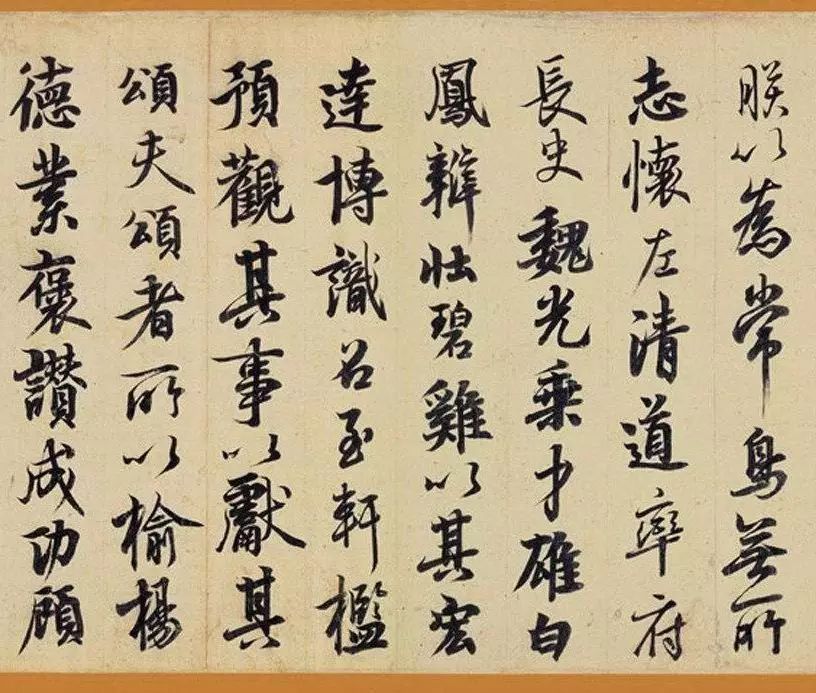 朕以為常鳥無所
志懷左清道率府
長史魏光乗才雄白
鳳辯壯碧雞以其宏
達博識召至軒檻
預觀其事以獻其
頌夫頌者所以揄揚
德業褒讃成功顧